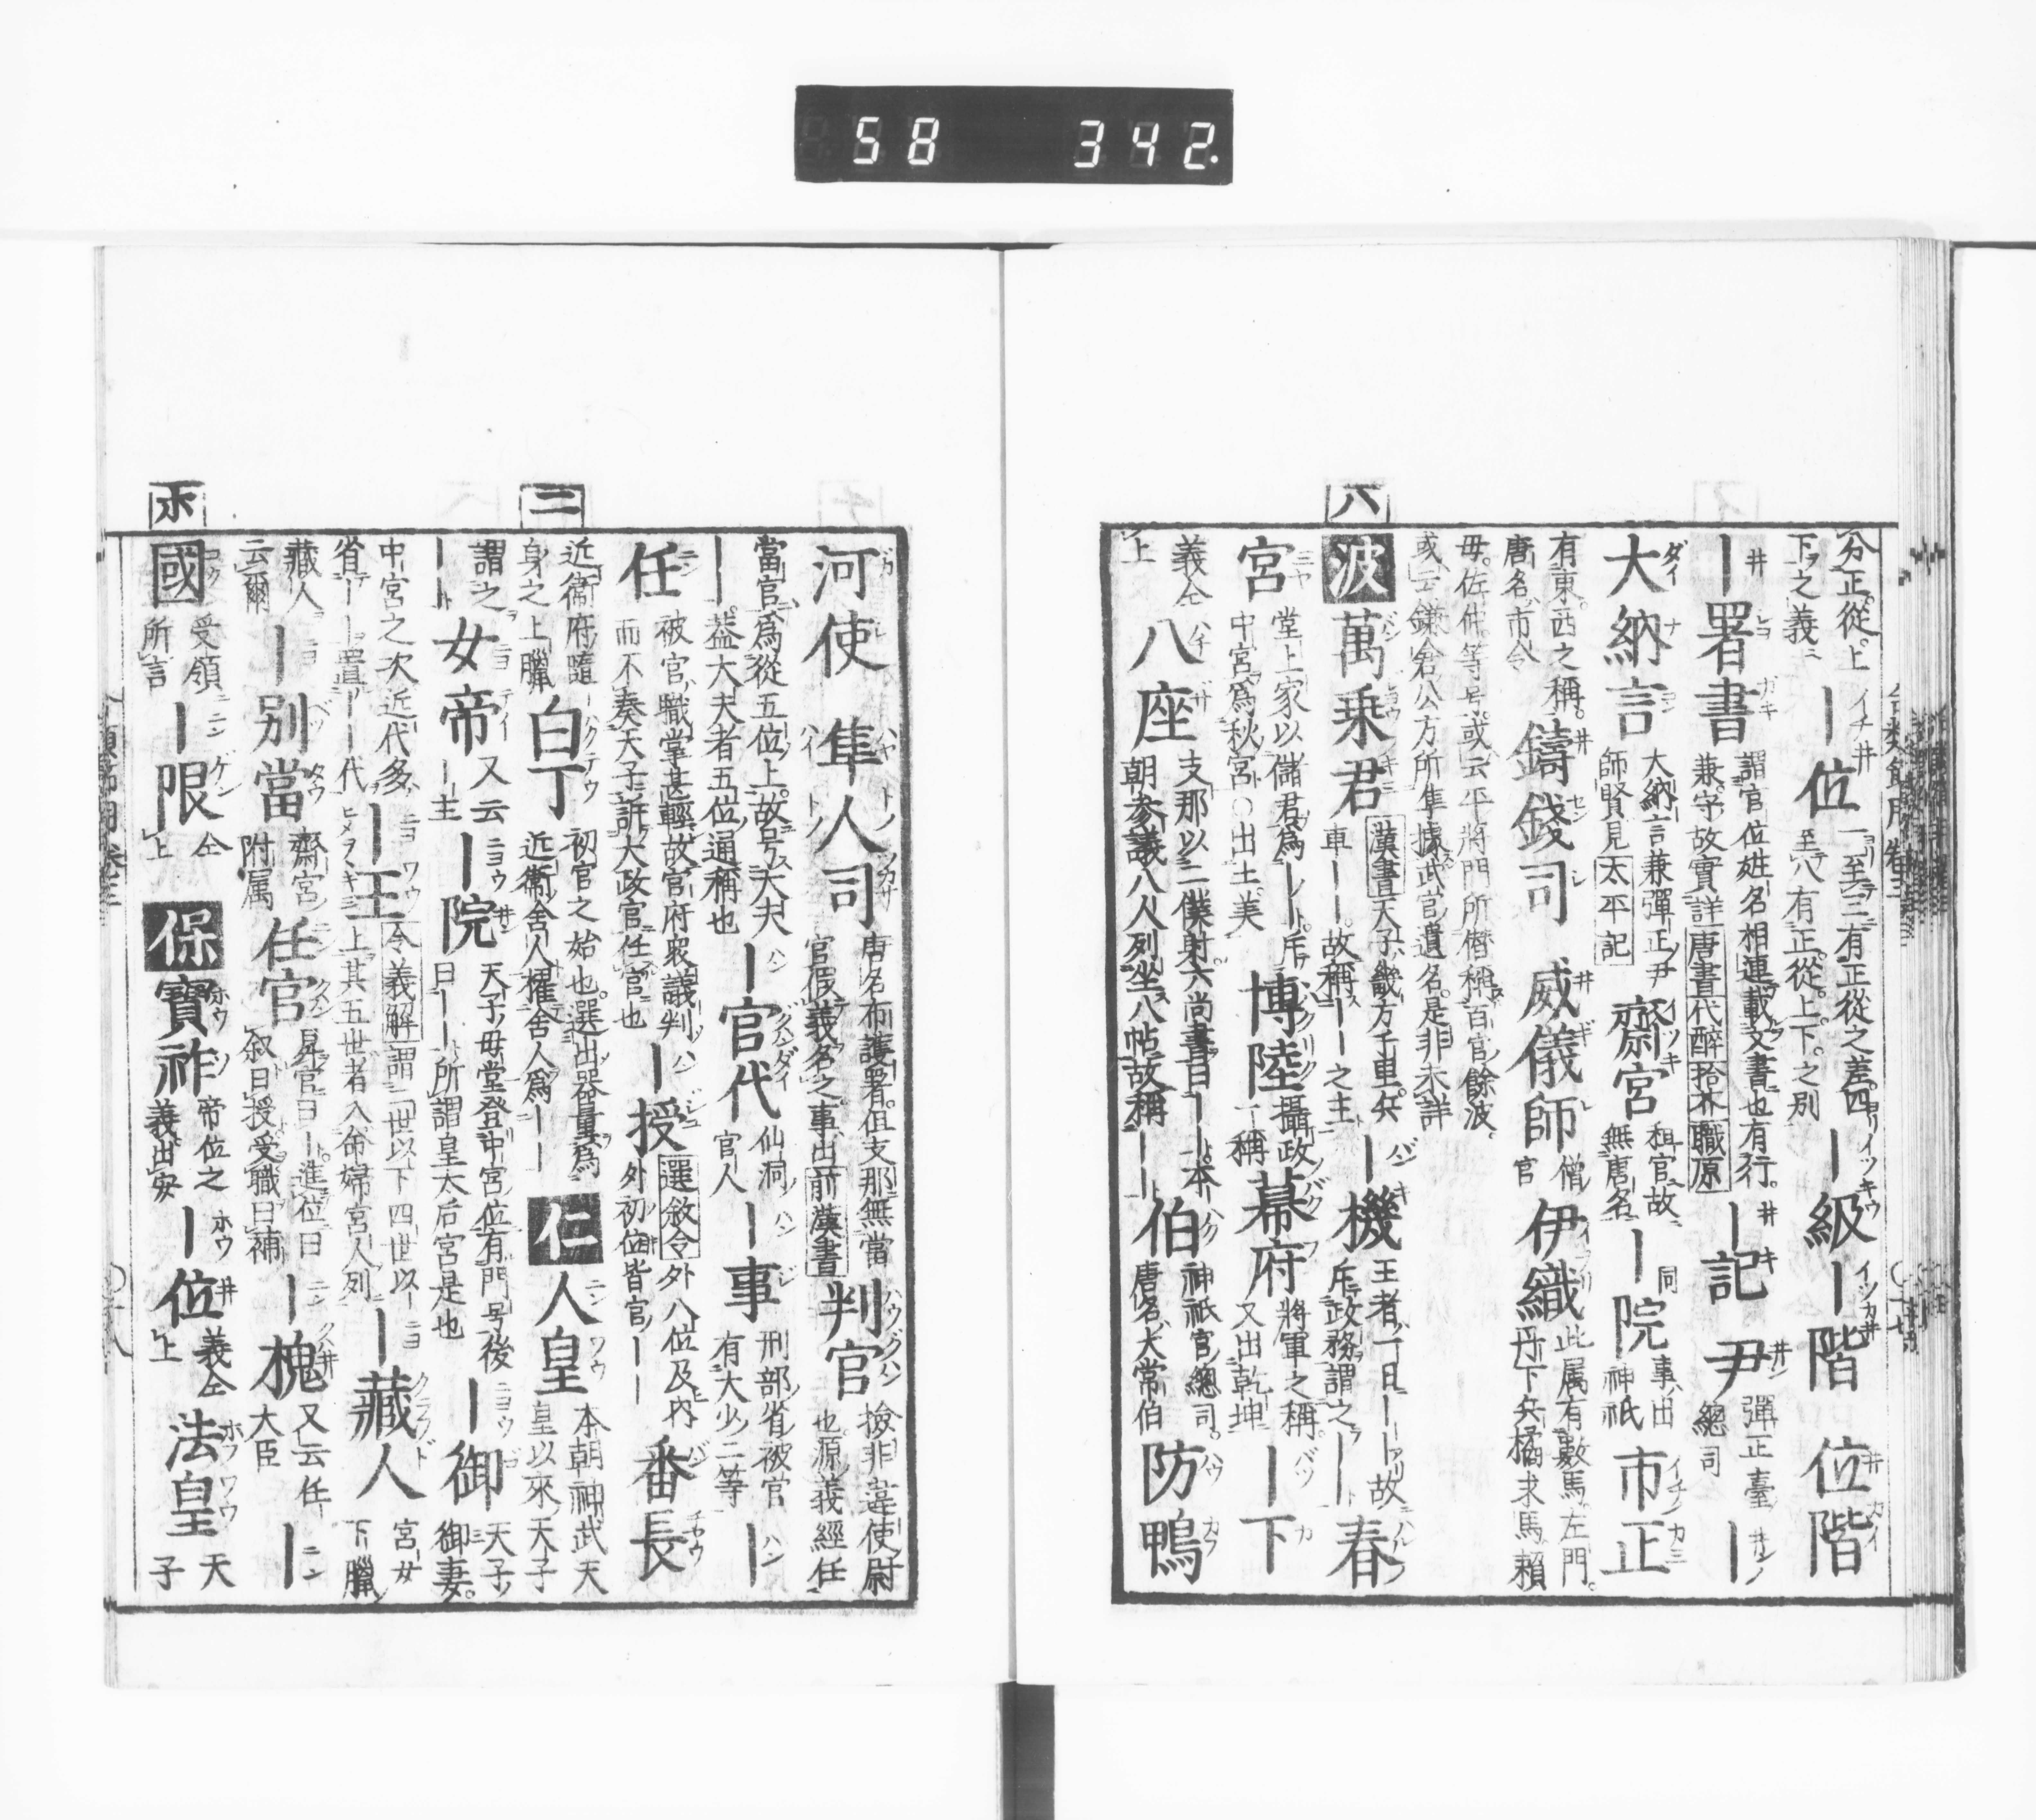 58 342.
分正從上下之義 ｜位 一至三有正從之差四ヨリ至八有正從上下之別 ｜級 ｜階 位階
｜署書 謂官位姓名相連載文書也有行兼守故實詳唐書代醉拾芥職原 ｜記 尹 彈正臺總司 ｜
大納言 大納言兼彈正尹師賢見太平記 齋宮 和官故無唐名 ｜院 同事出神祇 市正
有東西之稱唐名市令 鑄錢司 威儀師 僧官 伊織 此属有數馬左門丹下兵橘求馬頼
母佐仲等号或云平將門所僭稱百官餘波或云鎌倉公方所準據武官遺名是非未詳
ハ
波 萬乗君 漢書天子畿方千里兵車｜｜故稱｜｜之主 ｜機 王者一日｜｜故斥政務謂之｜｜ 春
宮 堂上家以儲君爲｜｜斥中宮爲秋宮○出土美 博陸 攝政一稱 幕府 將軍之稱又出乾坤 ｜下
義仝上 八座 支那以二僕射六尚書曰｜｜本朝參議八人列坐八帖故稱｜｜ 伯 神祇官總司唐名大常伯 防鴨
河使 隼人司 唐名布護署但支那無當官假義名之事出前漢書 判官 撿非違使尉也源義經任
當官爲從五位上故号大夫｜蓋大夫者五位通稱也 ｜官代 仙洞官人 ｜事 刑部省被官有大少二等 ｜
任 被官職掌甚輕故官府衆議判而不奏天子訴大政官任官也 ｜授 選敘令外八位及内外初位皆官｜｜ 番長
ニ
近衞府隨身之上臈 白丁 初官之始也選出器量爲近衞舍人擢舍人爲｜｜ 仁 人皇 本朝神武天皇以來天子
謂之｜｜ 女帝 又云｜主 ｜院 天子母堂登中宮位有門号後曰｜｜所謂皇太后宮是也 ｜御 天子御妻
中宮之次近代多省｜｜置｜｜代 ｜王 令義解謂二世以下四世以上其五世者入命婦宮人列 ｜藏人 宮女下臈
藏人云爾 ｜別當 齋宮附属 任官 昇官曰｜進位曰叙曰授受職曰補 ｜槐 又云任大臣 ｜
ホ
國 受領所言 ｜限 仝上 保 寳祚 帝位之義出安 ｜位 義仝上 法皇 天子